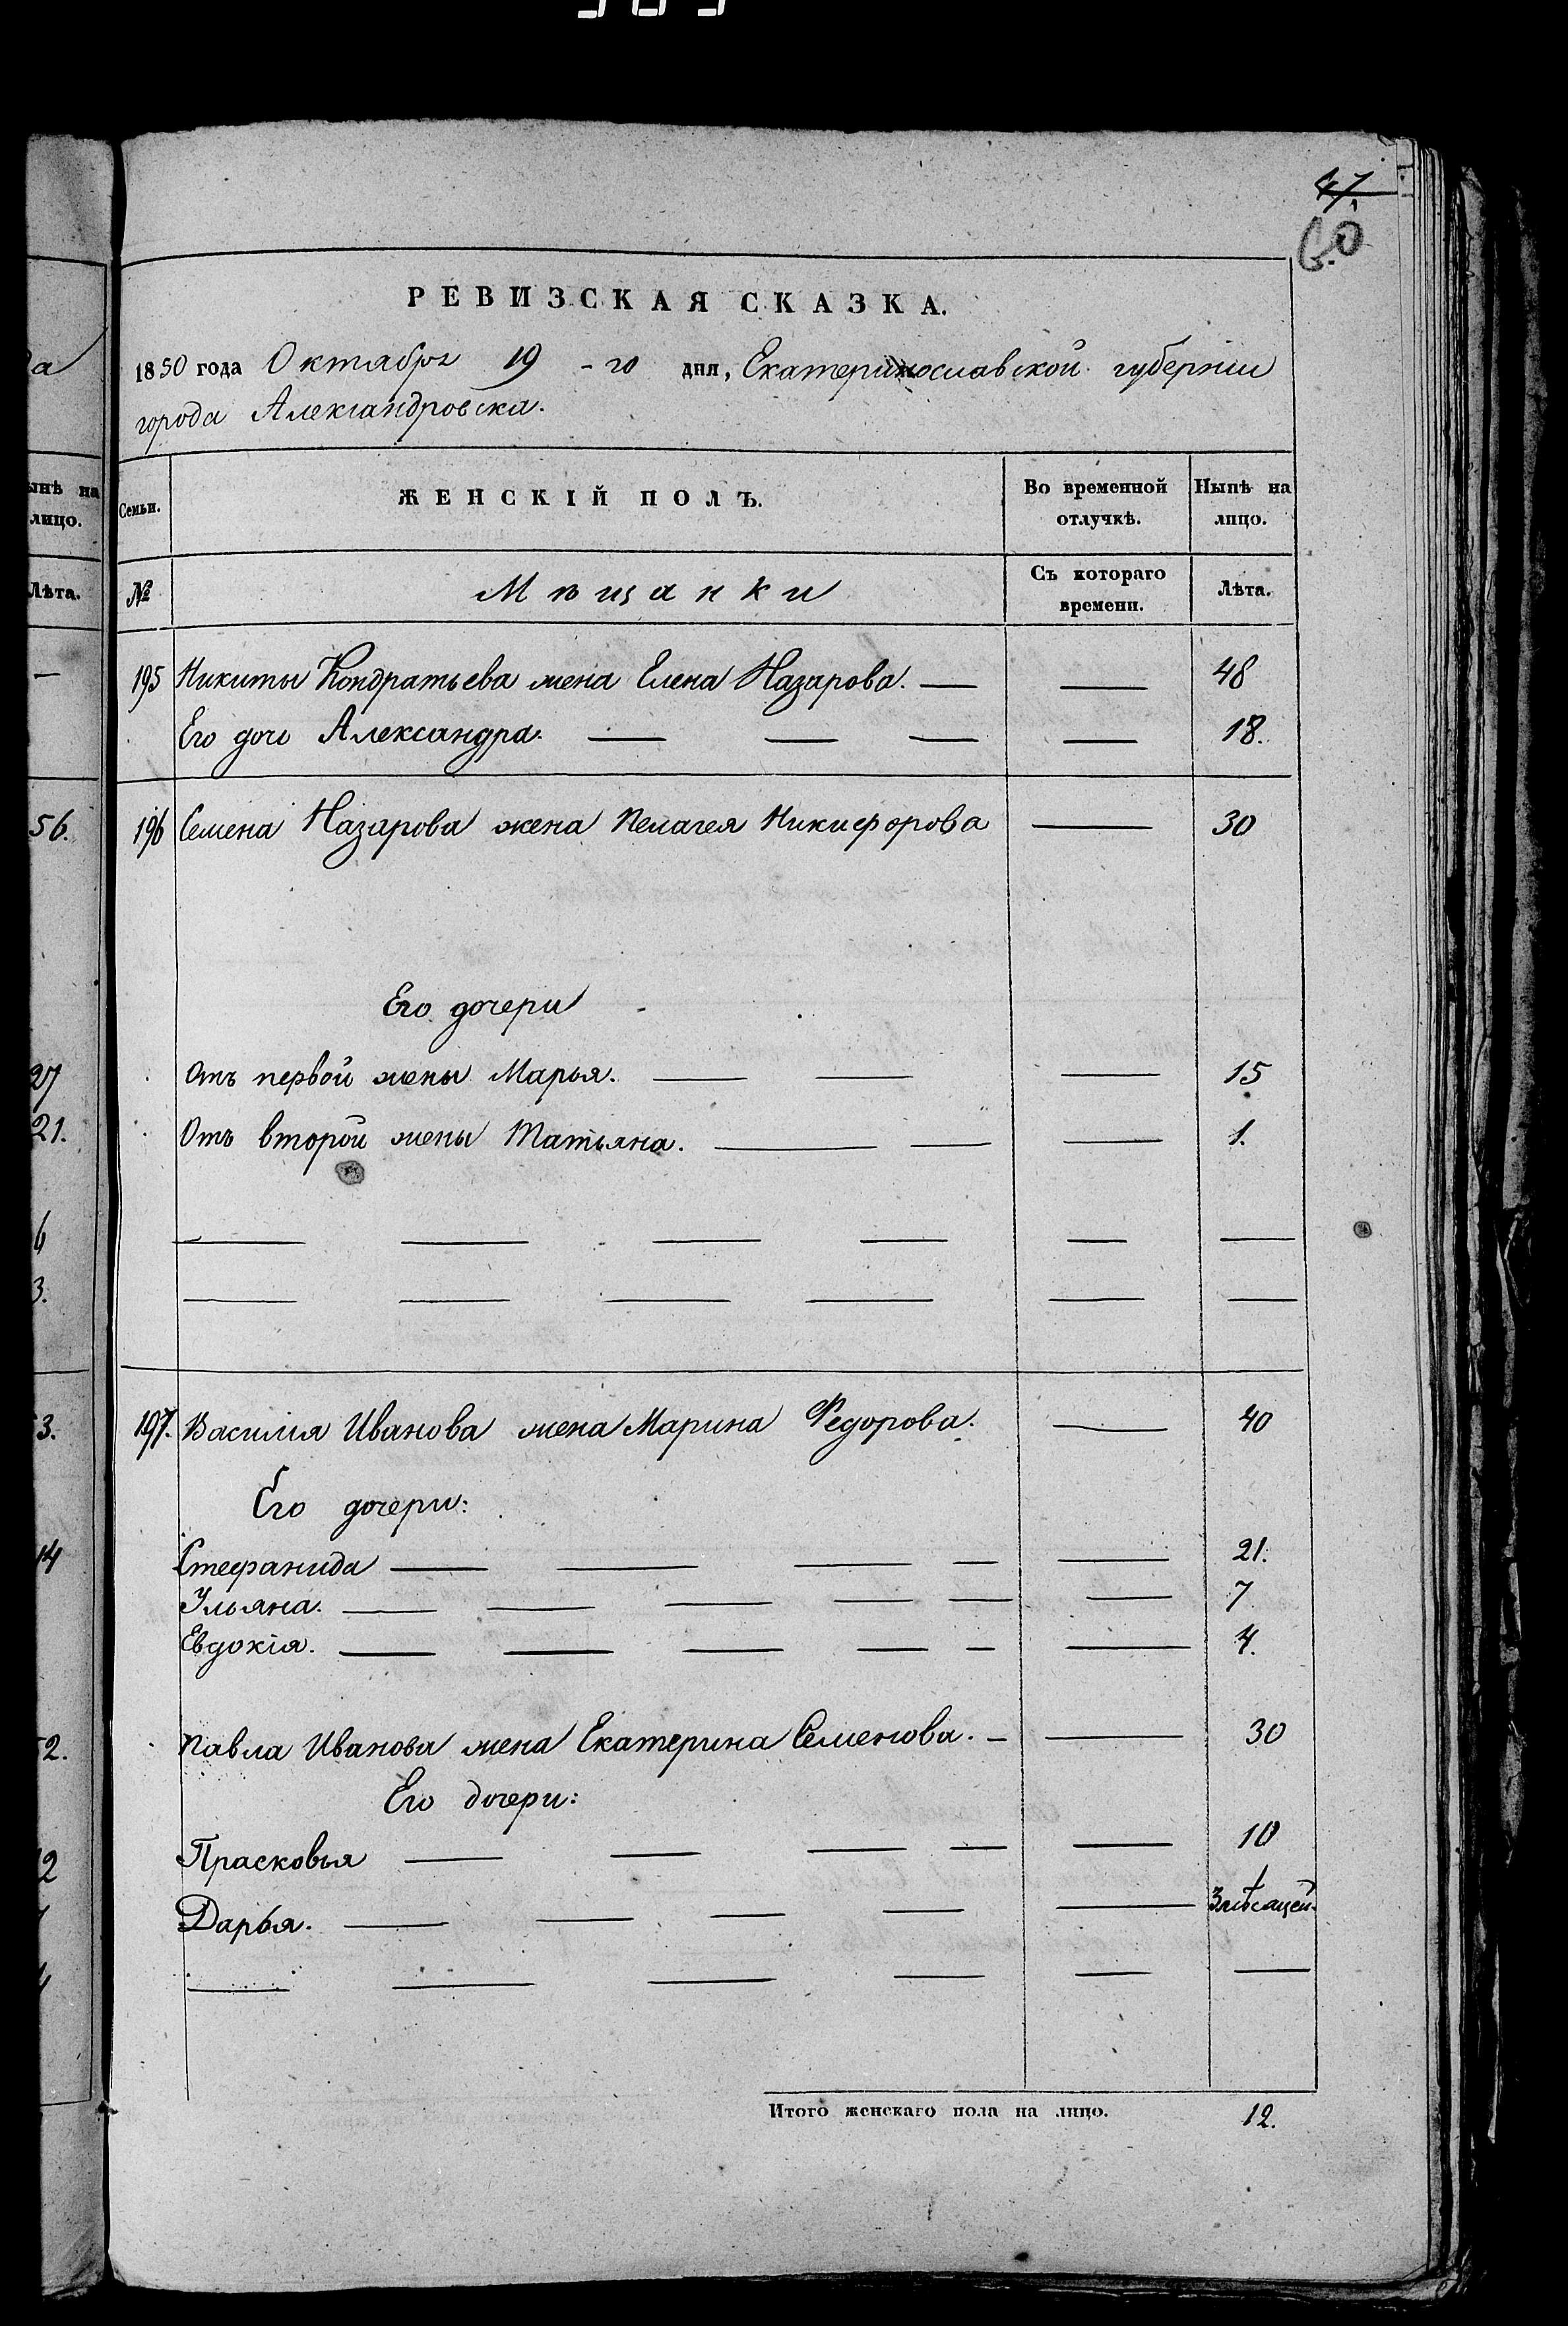 47.
60
РЕВИЗСКАЯ СКАЗКА.
1850 года Октября 19 -го дня, Екатеринославской губерніи
города Александровска.
Семьи. ЖЕНСКІЙ ПОЛЪ. Во временной отлучкѣ. Нынѣ на лицо.
№ Мѣщанки Съ котораго времени. Лѣта.
195 Никиты Кондратьева жена Елена Назарова. — — 48
Его дочь Александра. — — — — 18.
196 Семена Назарова жена Пелагея Никифорова — 30
Его дочери
Отъ первой жены Марья. — — — 15
Отъ второй жены Татьяна. — — — 1.
— — — — — —
— — — — — —
197. Василія Иванова жена Марина Федорова. — 40
Его дочери:
Стефанида — — — — — 21.
Ульяна. — — — — — — 7
Евдокія. — — — — — — 4.
Павла Иванова жена Екатерина Семенова. — — 30
Его дочери:
Прасковья — — — — — 10
Дарья. — — — — — 3 мѣсацей.
— — — — — —
Итого женскаго пола на лицо. 12.
ынѣ на
лицо.
Лѣта.
—
56.
27
21.
6
3.
3.
14
2.
2